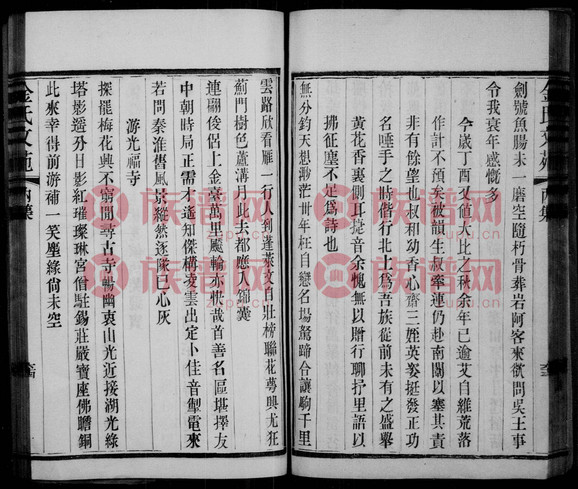 劍號魚腸未一磨空隨朽骨葬岩阿客來欲問吳王事
令我衰年感慨多
今歲丁酉又値大比之秋余年已逾艾自維荒落
作計不預矣被韻生叔牽連仍赴南闈以塞其責
非有餘望也叔和幼香心齋三姪英姿挺發正功
名唾手之時偕行北上爲吾族從前未有之盛舉
黃花香裏側耳捷音余愧無以贈行聊抒里語以
拂征塵不足爲詩也
無分鈞天想渺茫卅年枉自戀名場駑蹄合讓駒千里
雲路欣看雁一行人到蓬萊文自壯榜聯花萼興尤狂
薊門樹色蘆溝月此去都應入錦囊
連翩俊侶上金臺萬里飇輪亦快哉首善名區堪擇友
中朝時局正需才遙知傑構凌雲出定卜佳音掣電來
若問秦淮舊風景縱然逐隊已心灰
游光福寺
探罷梅花興不窮閒尋古寺暢幽衷山光近接湖光綠
塔影遙分日影紅璀璨琳宮僧駐錫莊嚴寶座佛瞻銅
此來幸得前游補一笑塵緣尙未空
金氏文苑
丙集
族谱网
zupu.cn
族谱网
zupu.cn